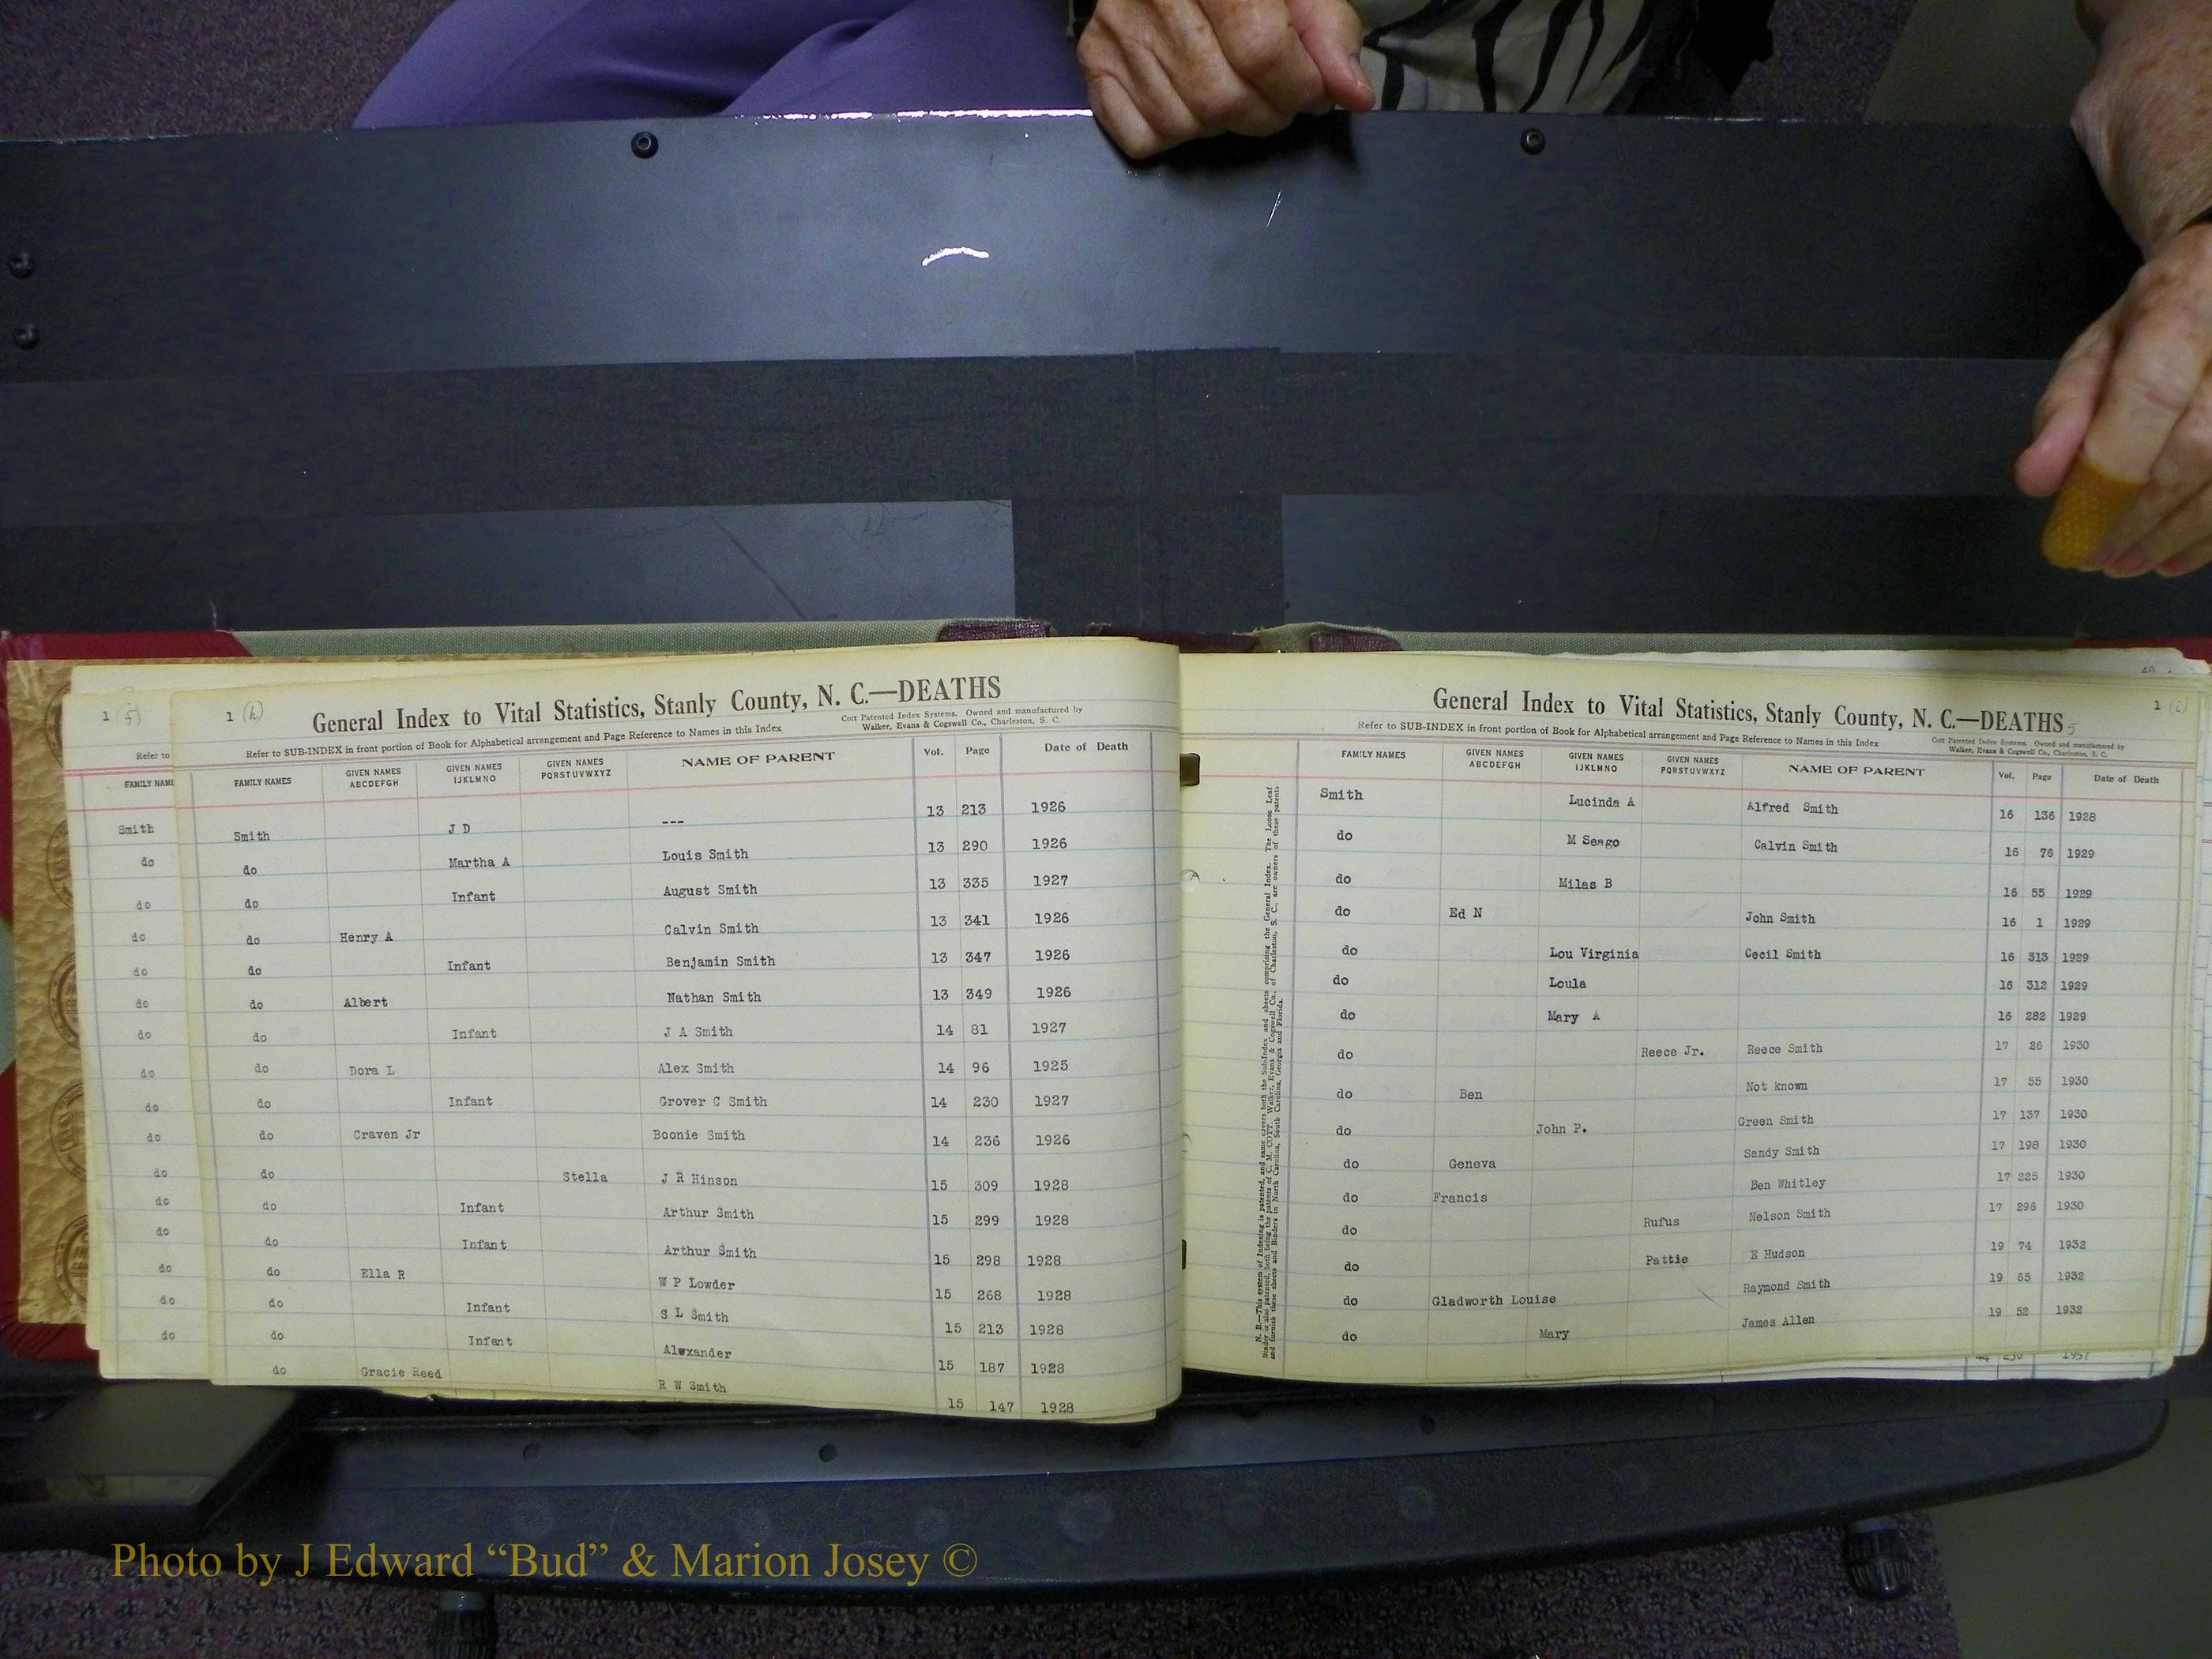 1 (f)
Refer to
FAMILY NAM
Smith
do
do
do
do
do
do
do
do
do
do
do
do
do
do
1 (h)
General Index to Vital Statistics, Stanly County, N. C.—DEATHS
Refer to SUB-INDEX in front portion of Book for Alphabetical arrangement and Page Reference to Names in this Index
Cott Patented Index Systems. Owned and manufactured by
Walker, Evans & Cogswell Co., Charleston, S. C.
FAMILY NAMES GIVEN NAMES ABCDEFGH GIVEN NAMES IJKLMNO GIVEN NAMES PQRSTUVWXYZ NAME OF PARENT Vol. Page Date of Death
Smith J D --- 13 213 1926
do Martha A Louis Smith 13 290 1926
do Infant August Smith 13 335 1927
do Henry A Calvin Smith 13 341 1926
do Infant Benjamin Smith 13 347 1926
do Albert Nathan Smith 13 349 1926
do Infant J A Smith 14 81 1927
do Dora L Alex Smith 14 96 1925
do Infant Grover C Smith 14 230 1927
do Craven Jr Boonie Smith 14 236 1926
do Stella J R Hinson 15 309 1928
do Infant Arthur Smith 15 299 1928
do Infant Arthur Smith 15 298 1928
do Ella R W P Lowder 15 268 1928
do Infant S L Smith 15 213 1928
do Infant Alwxander 15 187 1928
do Gracie Reed R W Smith 15 147 1928
General Index to Vital Statistics, Stanly County, N. C.—DEATHS 5
1 (i)
Refer to SUB-INDEX in front portion of Book for Alphabetical arrangement and Page Reference to Names in this Index
Cott Patented Index Systems. Owned and manufactured by
Walker, Evans & Cogswell Co., Charleston, S. C.
N. B.—This system of Indexing is patented, and same covers both the Sub-Index and sheets comprising the General Index. The Loose Leaf
Binder is also patented, both being the patents of C. M. COTT. Walker, Evans & Cogswell Co., of Charleston, S. C., are owners of these patents
and furnish these sheets and Binders in North Carolina, South Carolina, Georgia and Florida.
FAMILY NAMES GIVEN NAMES ABCDEFGH GIVEN NAMES IJKLMNO GIVEN NAMES PQRSTUVWXYZ NAME OF PARENT Vol. Page Date of Death
Smith Lucinda A Alfred Smith 16 136 1928
do M Seago Calvin Smith 16 76 1929
do Milas B 16 55 1929
do Ed N John Smith 16 1 1929
do Lou Virginia Cecil Smith 16 313 1929
do Loula 16 312 1929
do Mary A 16 282 1929
do Reece Jr. Reece Smith 17 26 1930
do Ben Not known 17 55 1930
do John P. Green Smith 17 137 1930
do Geneva Sandy Smith 17 198 1930
do Francis Ben Whitley 17 225 1930
do Rufus Nelson Smith 17 296 1930
do Pattie E Hudson 19 74 1932
do Gladworth Louise Raymond Smith 19 65 1932
do Mary James Allen 19 52 1932
Photo by J Edward “Bud” & Marion Josey ©